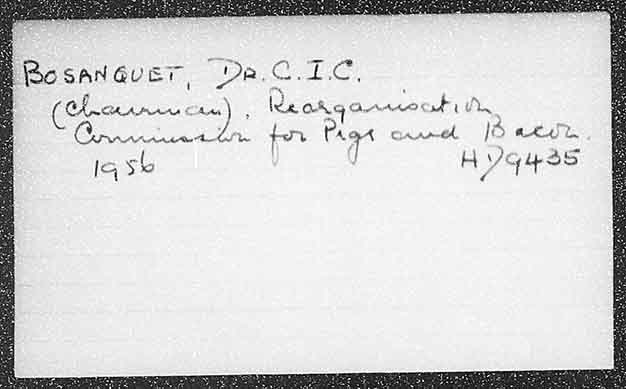 BOSANQUET, DR. C.I.C.
(Chairman). Reorganisation
Commission for Pigs and Bacon.
1956 HD9435